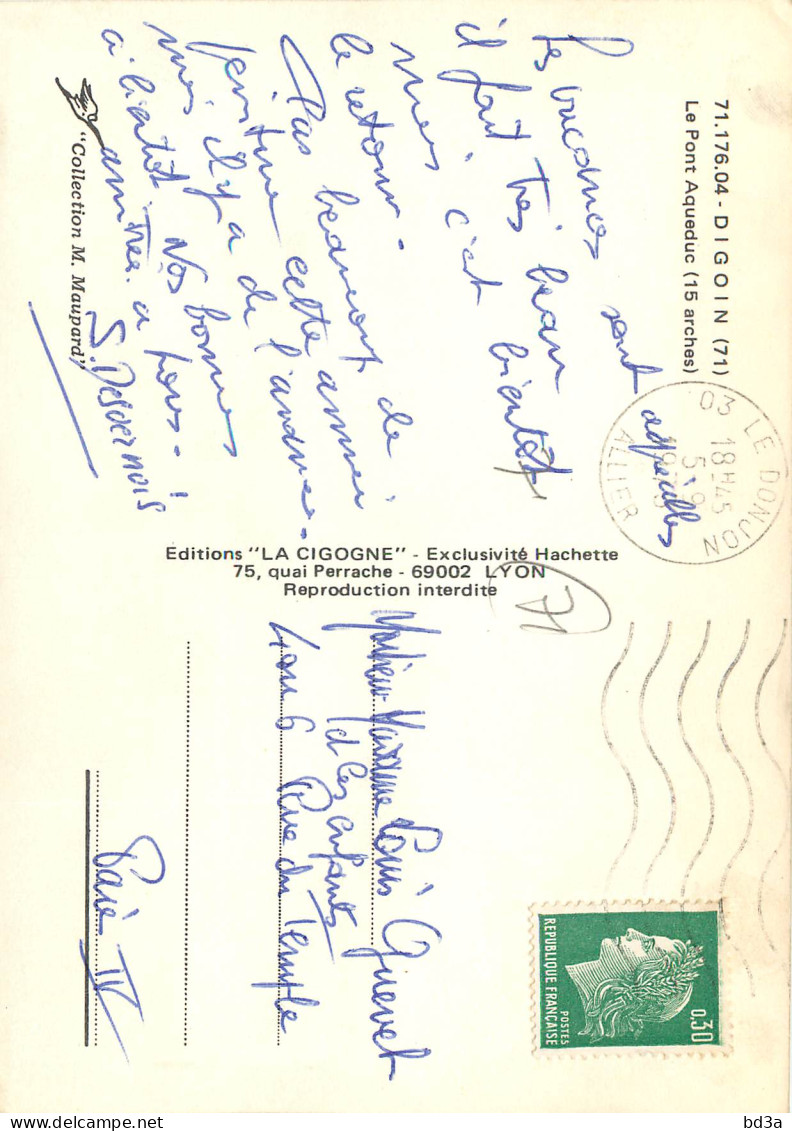 71.176.04 - DIGOIN (71)
Le Pont Aqueduc (15 arches)
les vacances sont agréables
il fait très beau
mais c'est bientôt
le retour.
Pas beaucoup de
cette année
mais il y a de l'ambiance.
Nos bonnes
amitiés à tous.
à bientôt !
S. Desvernois
"Collection M. Maupard"
Editions "LA CIGOGNE" - Exclusivité Hachette
75, quai Perrache - 69002 LYON
Reproduction interdite
03 LE DONJON
18H45
5-9
ALLIER
71
REPUBLIQUE FRANÇAISE
POSTES
0,30
Monsieur Madame Louis Quevet
et les enfants
6 Rue du Temple
Paris IV
bd3a